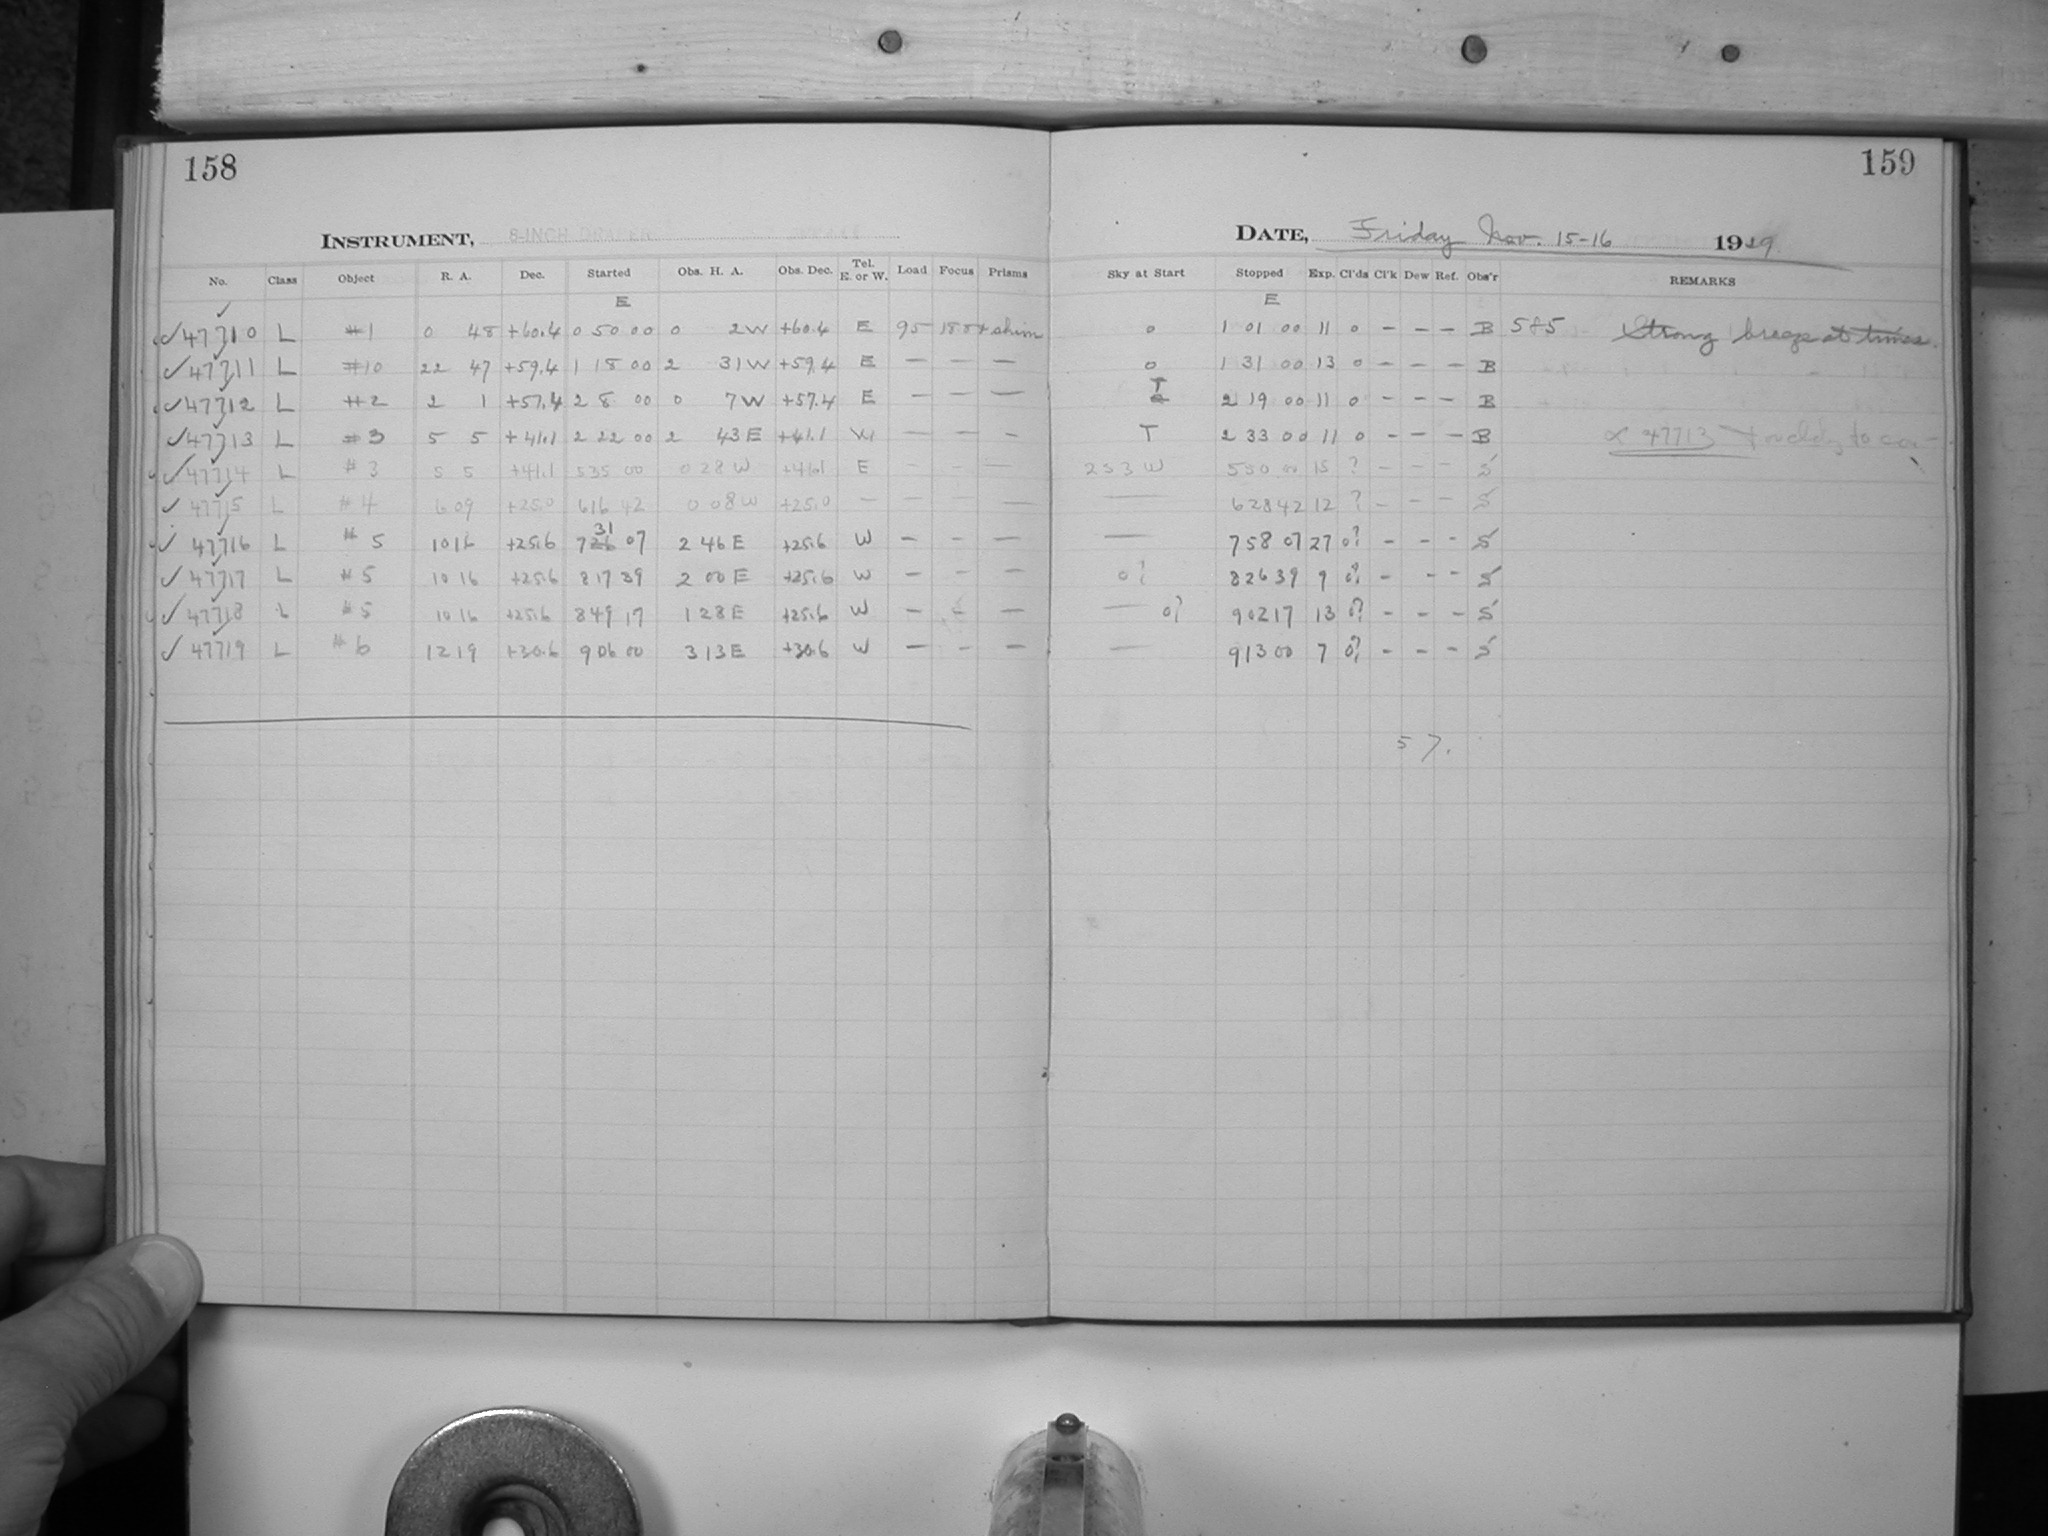 158
159
INSTRUMENT, 8-INCH DRAPER
DATE, Friday Nov. 15-16 1929.
No. Class Object R. A. Dec. Started Obs. H. A. Obs. Dec. Tel. E. or W. Load Focus Prisms Sky at Start Stopped Exp. Cl'ds Cl'k Dew Ref. Obs'r REMARKS
E E
✓47710 L #1 0 48 +60.4 0 50 00 0 2W +60.4 E 95 shim 0 1 01 00 11 0 - - - B 585 Strong breeze at times.
✓47711 L #10 22 47 +59.4 1 18 00 2 31W +59.4 E — — — 0 1 31 00 13 0 - - - B
✓47712 L #2 2 1 +57.4 2 8 00 0 7W +57.4 E — — — T 2 19 00 11 0 - - - B
✓47713 L #3 5 5 +41.1 2 22 00 2 43E +41.1 W — — - T 2 33 00 11 0 - - - B 47713
✓47714 L #3 5 5 +41.1 5 35 00 0 28 W E - - - 253 W 550 00 15 ? - - - S
✓47715 L #4 6 09 +25.0 616 42 0 08 W +25.0 — — — — — 62842 12 ? - - - S
31
✓47716 L #5 1016 +25.6 726 07 2 46 E +25.6 W - - — — 758 07 27 0? - - - S
✓47717 L #5 10 16 +25.6 817 39 2 00 E +25.6 W - - — 0? 82639 9 0? - - - S
✓47718 L #5 10 16 +25.6 849 17 1 28 E +25.6 W — - — — 0? 90217 13 0? - - - S
✓47719 L #6 1219 +30.6 906 00 3 13 E +30.6 W — - — — 91300 7 0? - - - S
57.